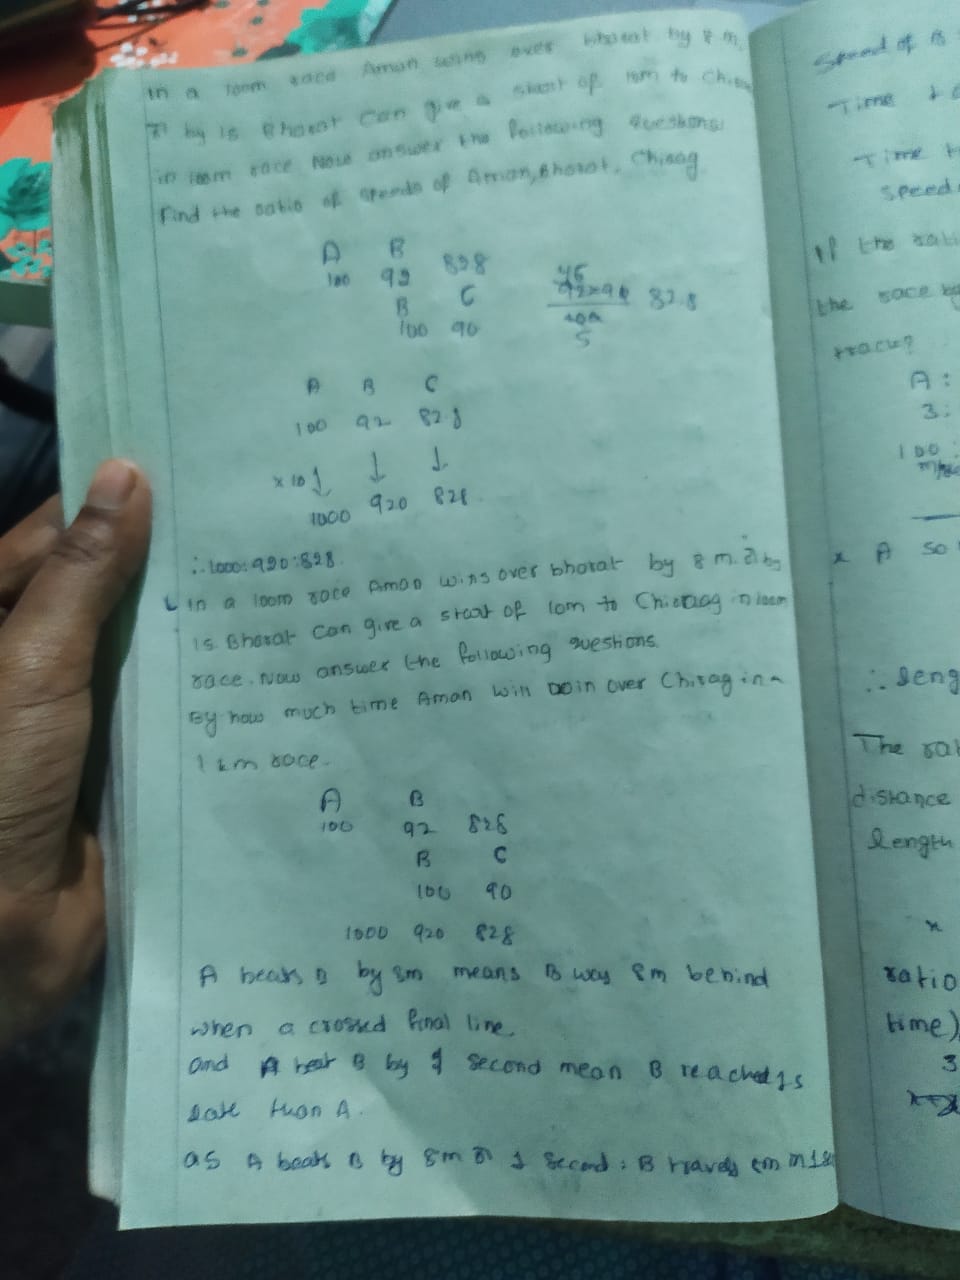 in a 100m race Aman wins over bharat by 8 m.
by 1s Bharat can give a start of 10m to
in 100m race Now answer the following questions
find the ratio of speeds of Aman, Bharat, Chirag
A B
100 92 828
B C
100 90
46
92×90 82.8
100
5
A B C
100 92 828
×10↓ ↓ ↓
1000 920 828
∴ 1000:920:828
in a 100m race Aman wins over bharat by 8 m. by
1s Bharat can give a start of 10m to Chirag in 100m
race. Now answer the following questions.
By how much time Aman win over Chirag in
1km race.
A B
100 92 828
B C
100 90
1000 920 828
A beats B by 8m means B was 8m behind
when a crossed final line
and A beat B by 1 second mean B reached 1s
late than A.
as A beats B by 8m 1 second : B travels 8m in 1
Speed of B
Time
Time
Speed
If the
the race
track?
A :
3:
100
A so
The
distance
length
x
ratio
time)
3